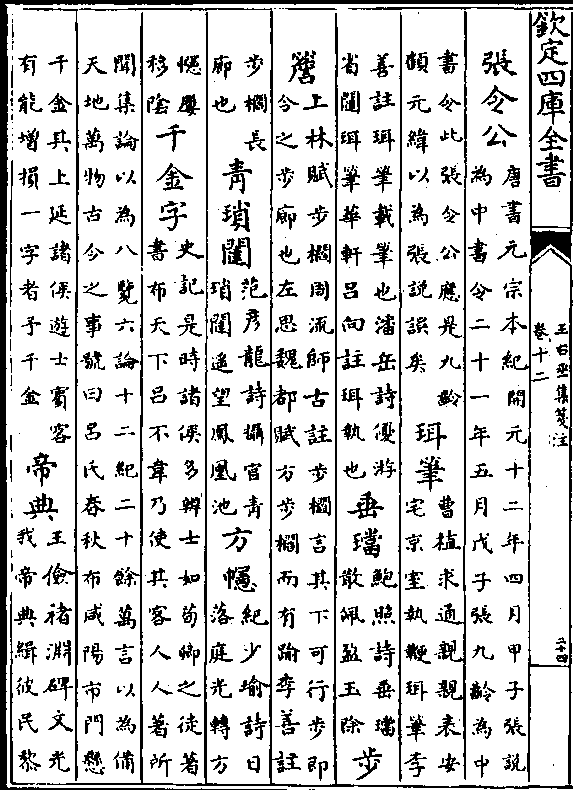 欽定四庫全書
王右丞集箋注
卷十二
二十四
張令公
唐書元宗本紀開元十二年四月甲子張說
為中書令二十一年五月戊子張九齡為中
書令此張令公應是九齡
顧元緯以為張說誤矣
珥筆
曹植求通親親表安
宅京室執鞭珥筆李
善註珥筆載筆也潘岳詩優游
省闥珥筆華軒呂向註珥執也
垂璫
鮑照詩垂璫
散佩盈玉除
步
簷
上林賦步櫩周流師古註步櫩言其下可行步即
今之步廊也左思魏都賦方步櫩而有踰李善註
步櫩長
廊也
青瑣闥
范彥龍詩攝官青
瑣闥遥望鳳凰池
方幰
紀少瑜詩日
落庭光轉方
幰屢
移陰
千金字
史記是時諸侯多辯士如荀卿之徒著
書布天下呂不韋乃使其客人人著所
聞集論以為八覽六論十二紀二十餘萬言以為備
天地萬物古今之事號曰呂氏春秋布咸陽市門懸
千金其上延諸侯遊士賓客
有能增損一字者予千金
帝典
王儉褚淵碑文光
我帝典緝彼民黎